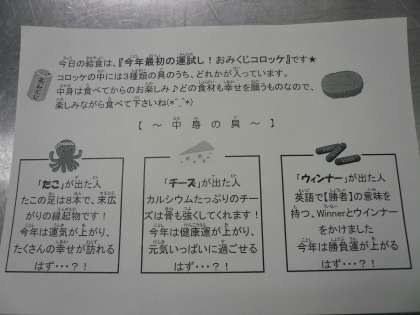 今日の給食は、『今年最初の運試し！おみくじコロッケ』です★
コロッケの中には３種類の具のうち、どれかが入っています。
中身は食べてからのお楽しみ♪どの食材も幸せを願うものなので、
楽しみながら食べて下さいね(*^_^*)
【 ～ 中 身 の 具 ～ 】
「たこ」が出た人
たこの足は８本で、末広
がりの縁起物です！
今年は運気が上がり、
たくさんの幸せが訪れる
はず・・・？！
「チーズ」が出た人
カルシウムたっぷりのチー
ズは骨も強くしてくれます！
今年は健康運が上がり、
元気いっぱいに過ごせる
はず・・・？！
「ウィンナー」が出た人
英語で【勝者】の意味を
持つ、Winnerとウインナー
をかけました
今年は勝負運が上がる
はず・・・？！